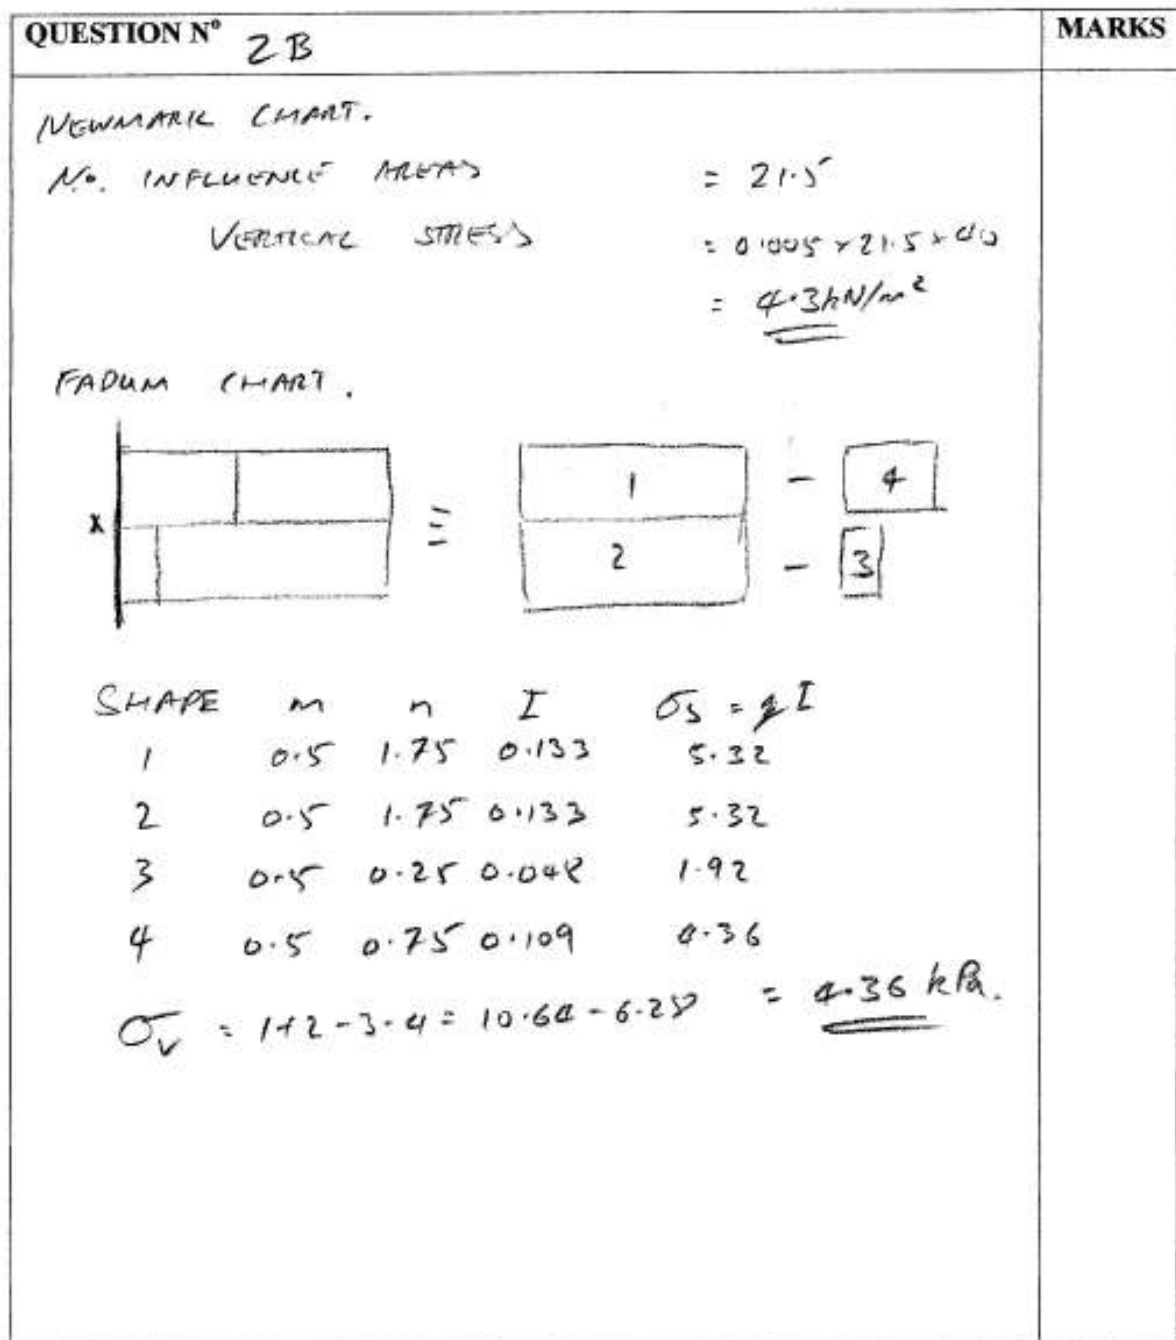 QUESTION Nº 2B MARKS
NEWMARK CHART.
No. INFLUENCE AREAS = 21.5
VERTICAL STRESS = 0.005 x 21.5 x 40
= 4.3kN/m²
FADUM CHART.
1 - 4
X ≡
2 - 3
SHAPE m n I σs = qI
1 0.5 1.75 0.133 5.32
2 0.5 1.75 0.133 5.32
3 0.5 0.25 0.048 1.92
4 0.5 0.75 0.109 4.36
σv = 1+2-3-4 = 10.64 - 6.28 = 4.36 kPa.